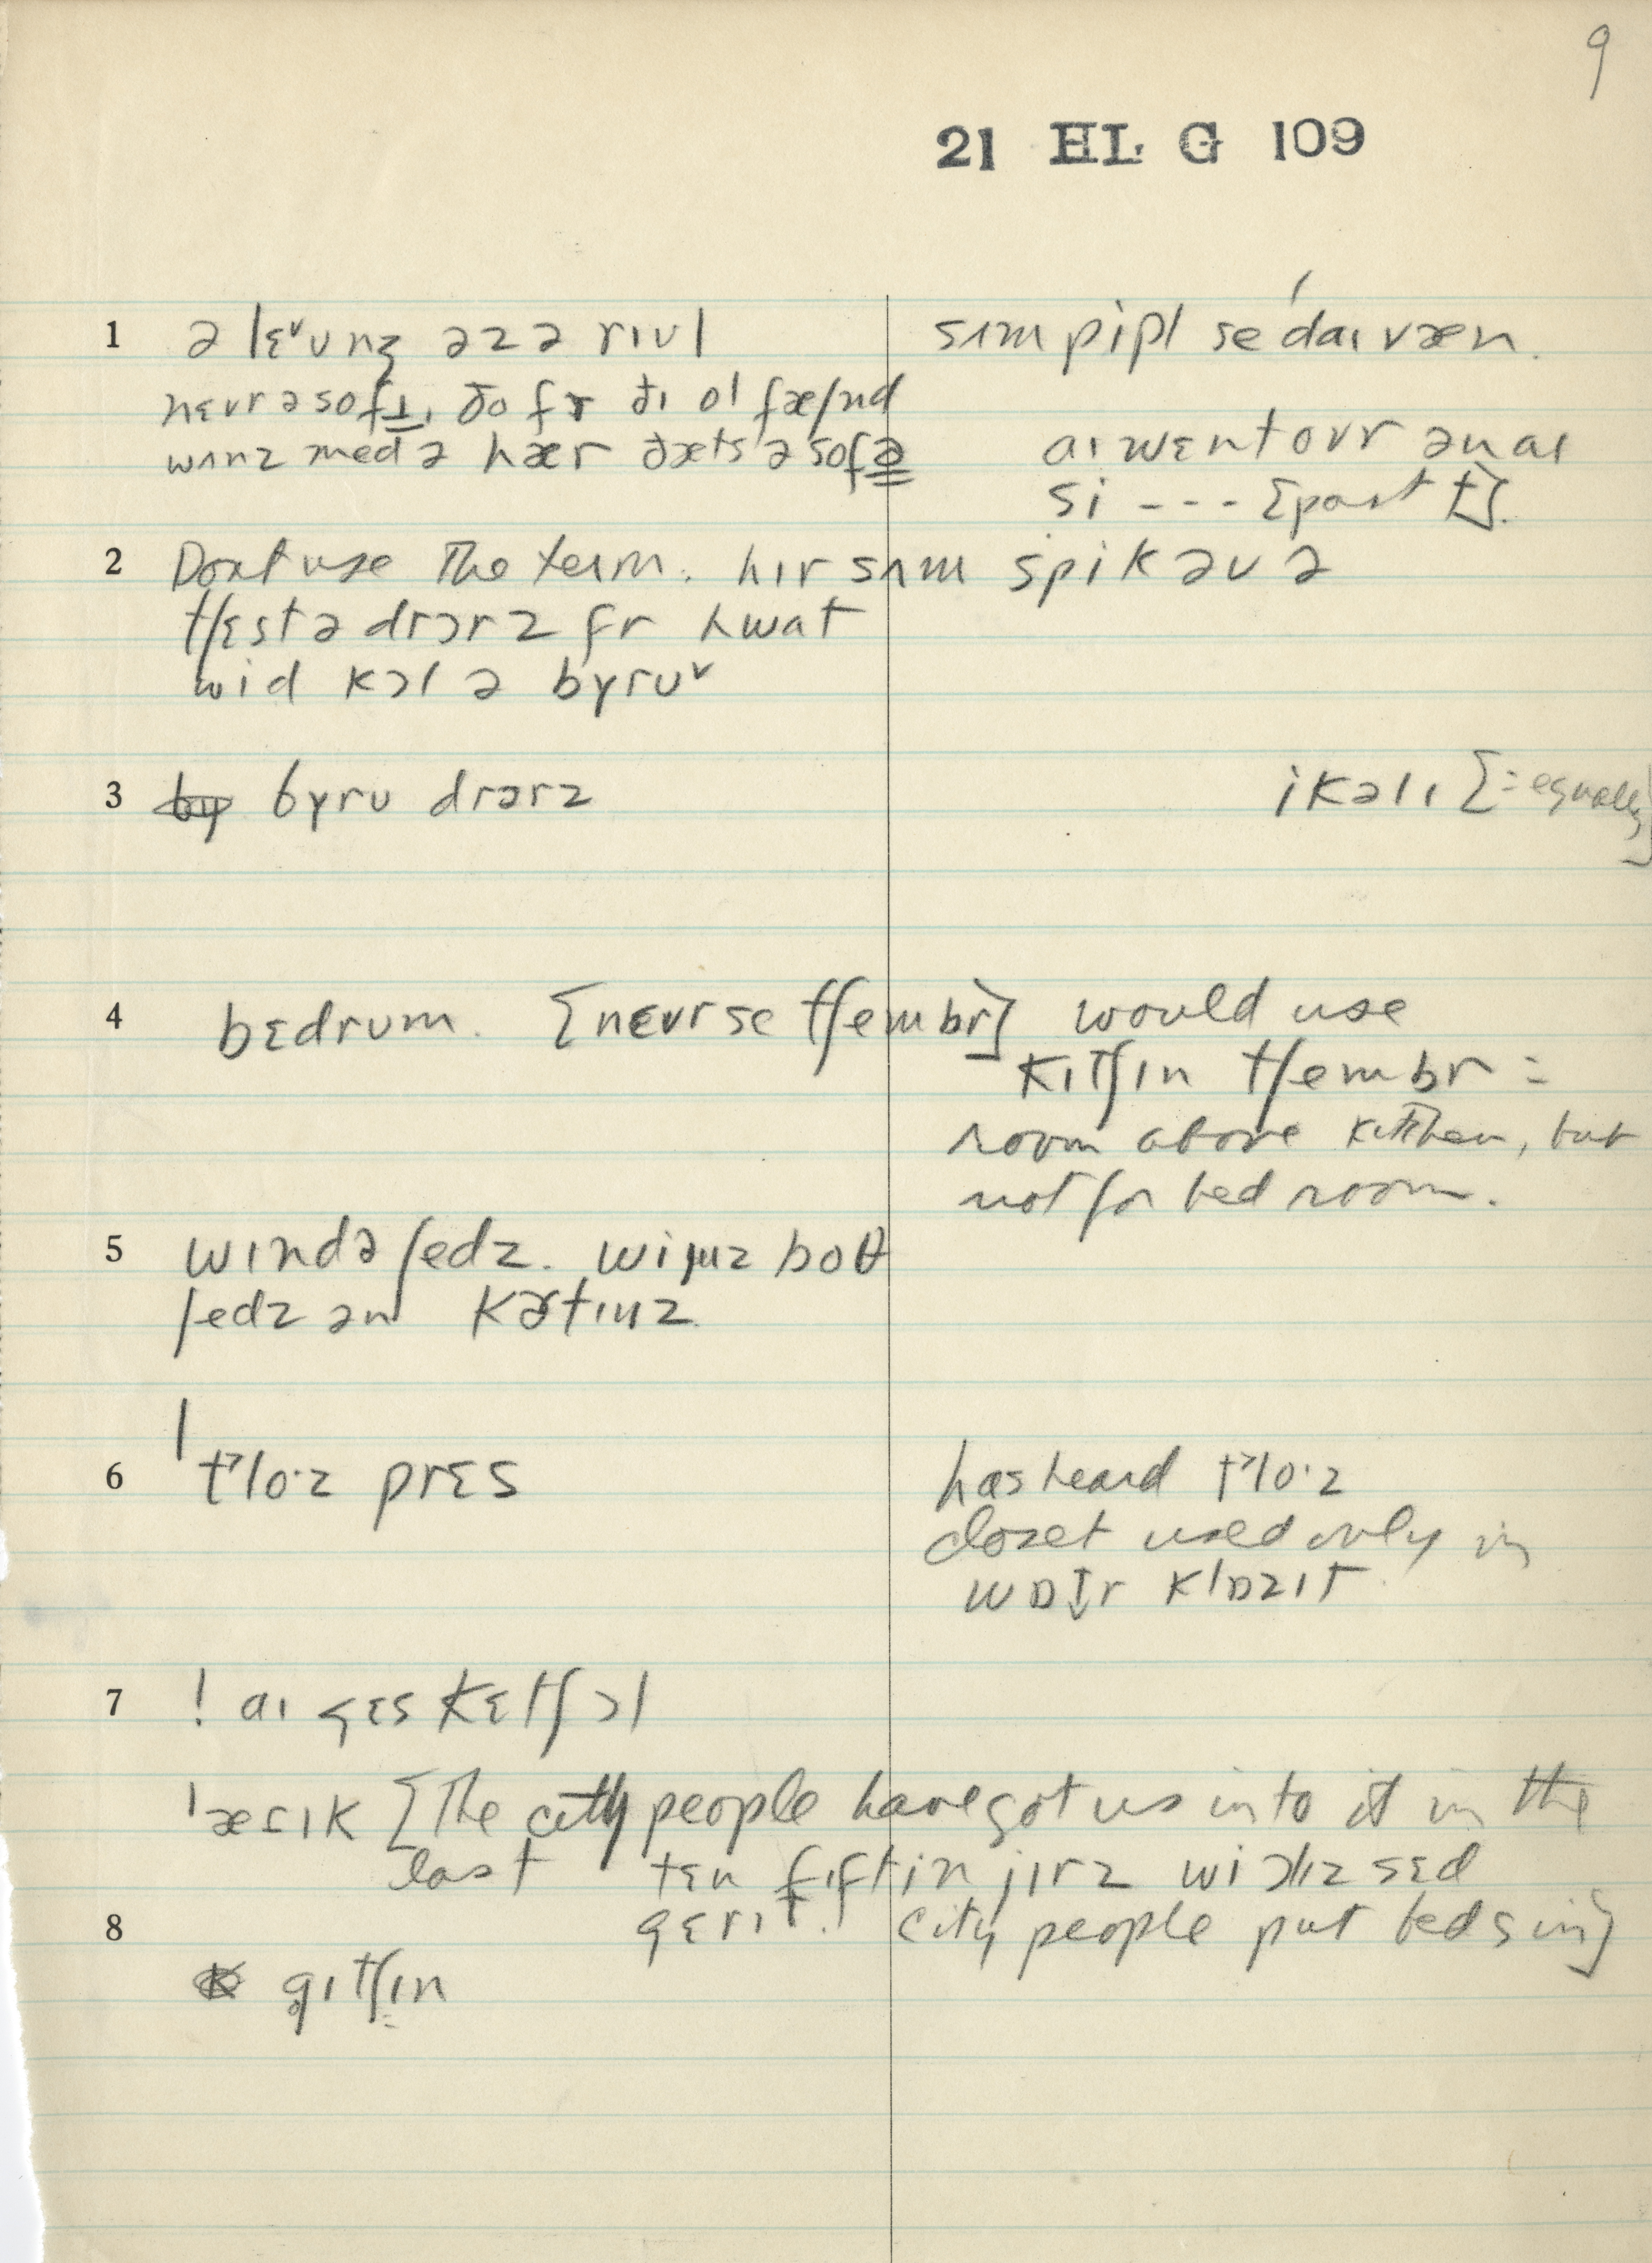 9
21 HL G 109
1 ə lɛᵛʊnʒ əzə rɪʊl sʌm pipl se ˈdaɪvæn.
nɛvr ə sofɪ, ðo fr ðɪ ol fæʃnd
wʌnz med ə hær ðæts ə sofə aɪ wɛnt ovr ən aɪ
si --- [past t].
2 Dont use the term. hɪr sʌm spik əv ə
tʃɛst ə drɔrz fr hwat
wid kɔl ə byruᵛ
3 byrʊ drɔrz ikəlɪ [= equally]
4 bɛdrum. [nɛvr se tʃembr] would use
kɪtʃɪn tʃembr =
room above kitchen, but
not for bed room.
5 wɪndə ʃedz. wi juz boθ
ʃedz ən kɚtɪnz.
6 t˺lo·z prɛs has heard t˺lo·z
closet used only in
wɒtr klɒzɪt.
7 ! aɪ gɛs kɛtʃ ɔl
ˈætɪk [The city people have got us into it in the
last tɛn fɪftin jɪrz wi ɔlɪz sɛd
gɛrɪt. city people put beds in]
8
gɪtʃɪn